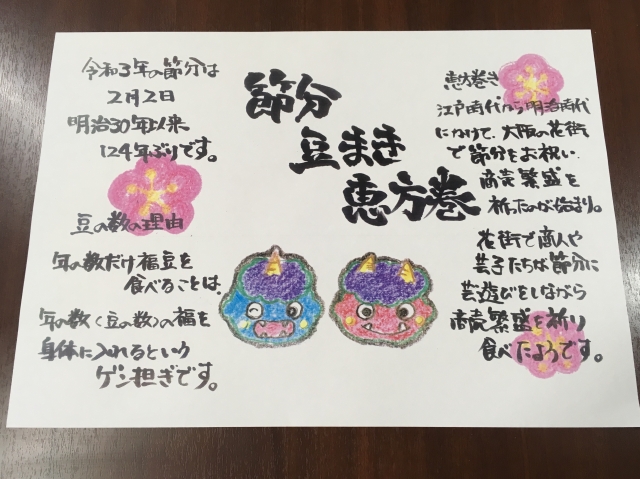 節分
豆まき
恵方巻
令和3年の節分は
2月2日
明治30年以来
124年ぶりです。
豆の数の理由
年の数だけ福豆を
食べることは、
年の数(豆の数)の福を
身体に入れるという
ゲン担ぎです。
恵方巻き
江戸時代から明治時代
にかけて、大阪の花街
で節分をお祝い、
商売繁盛を
祈ったのが始まり。
花街で商人や
芸子たちが節分に
芸遊びをしながら
商売繁盛を祈り
食べたようです。